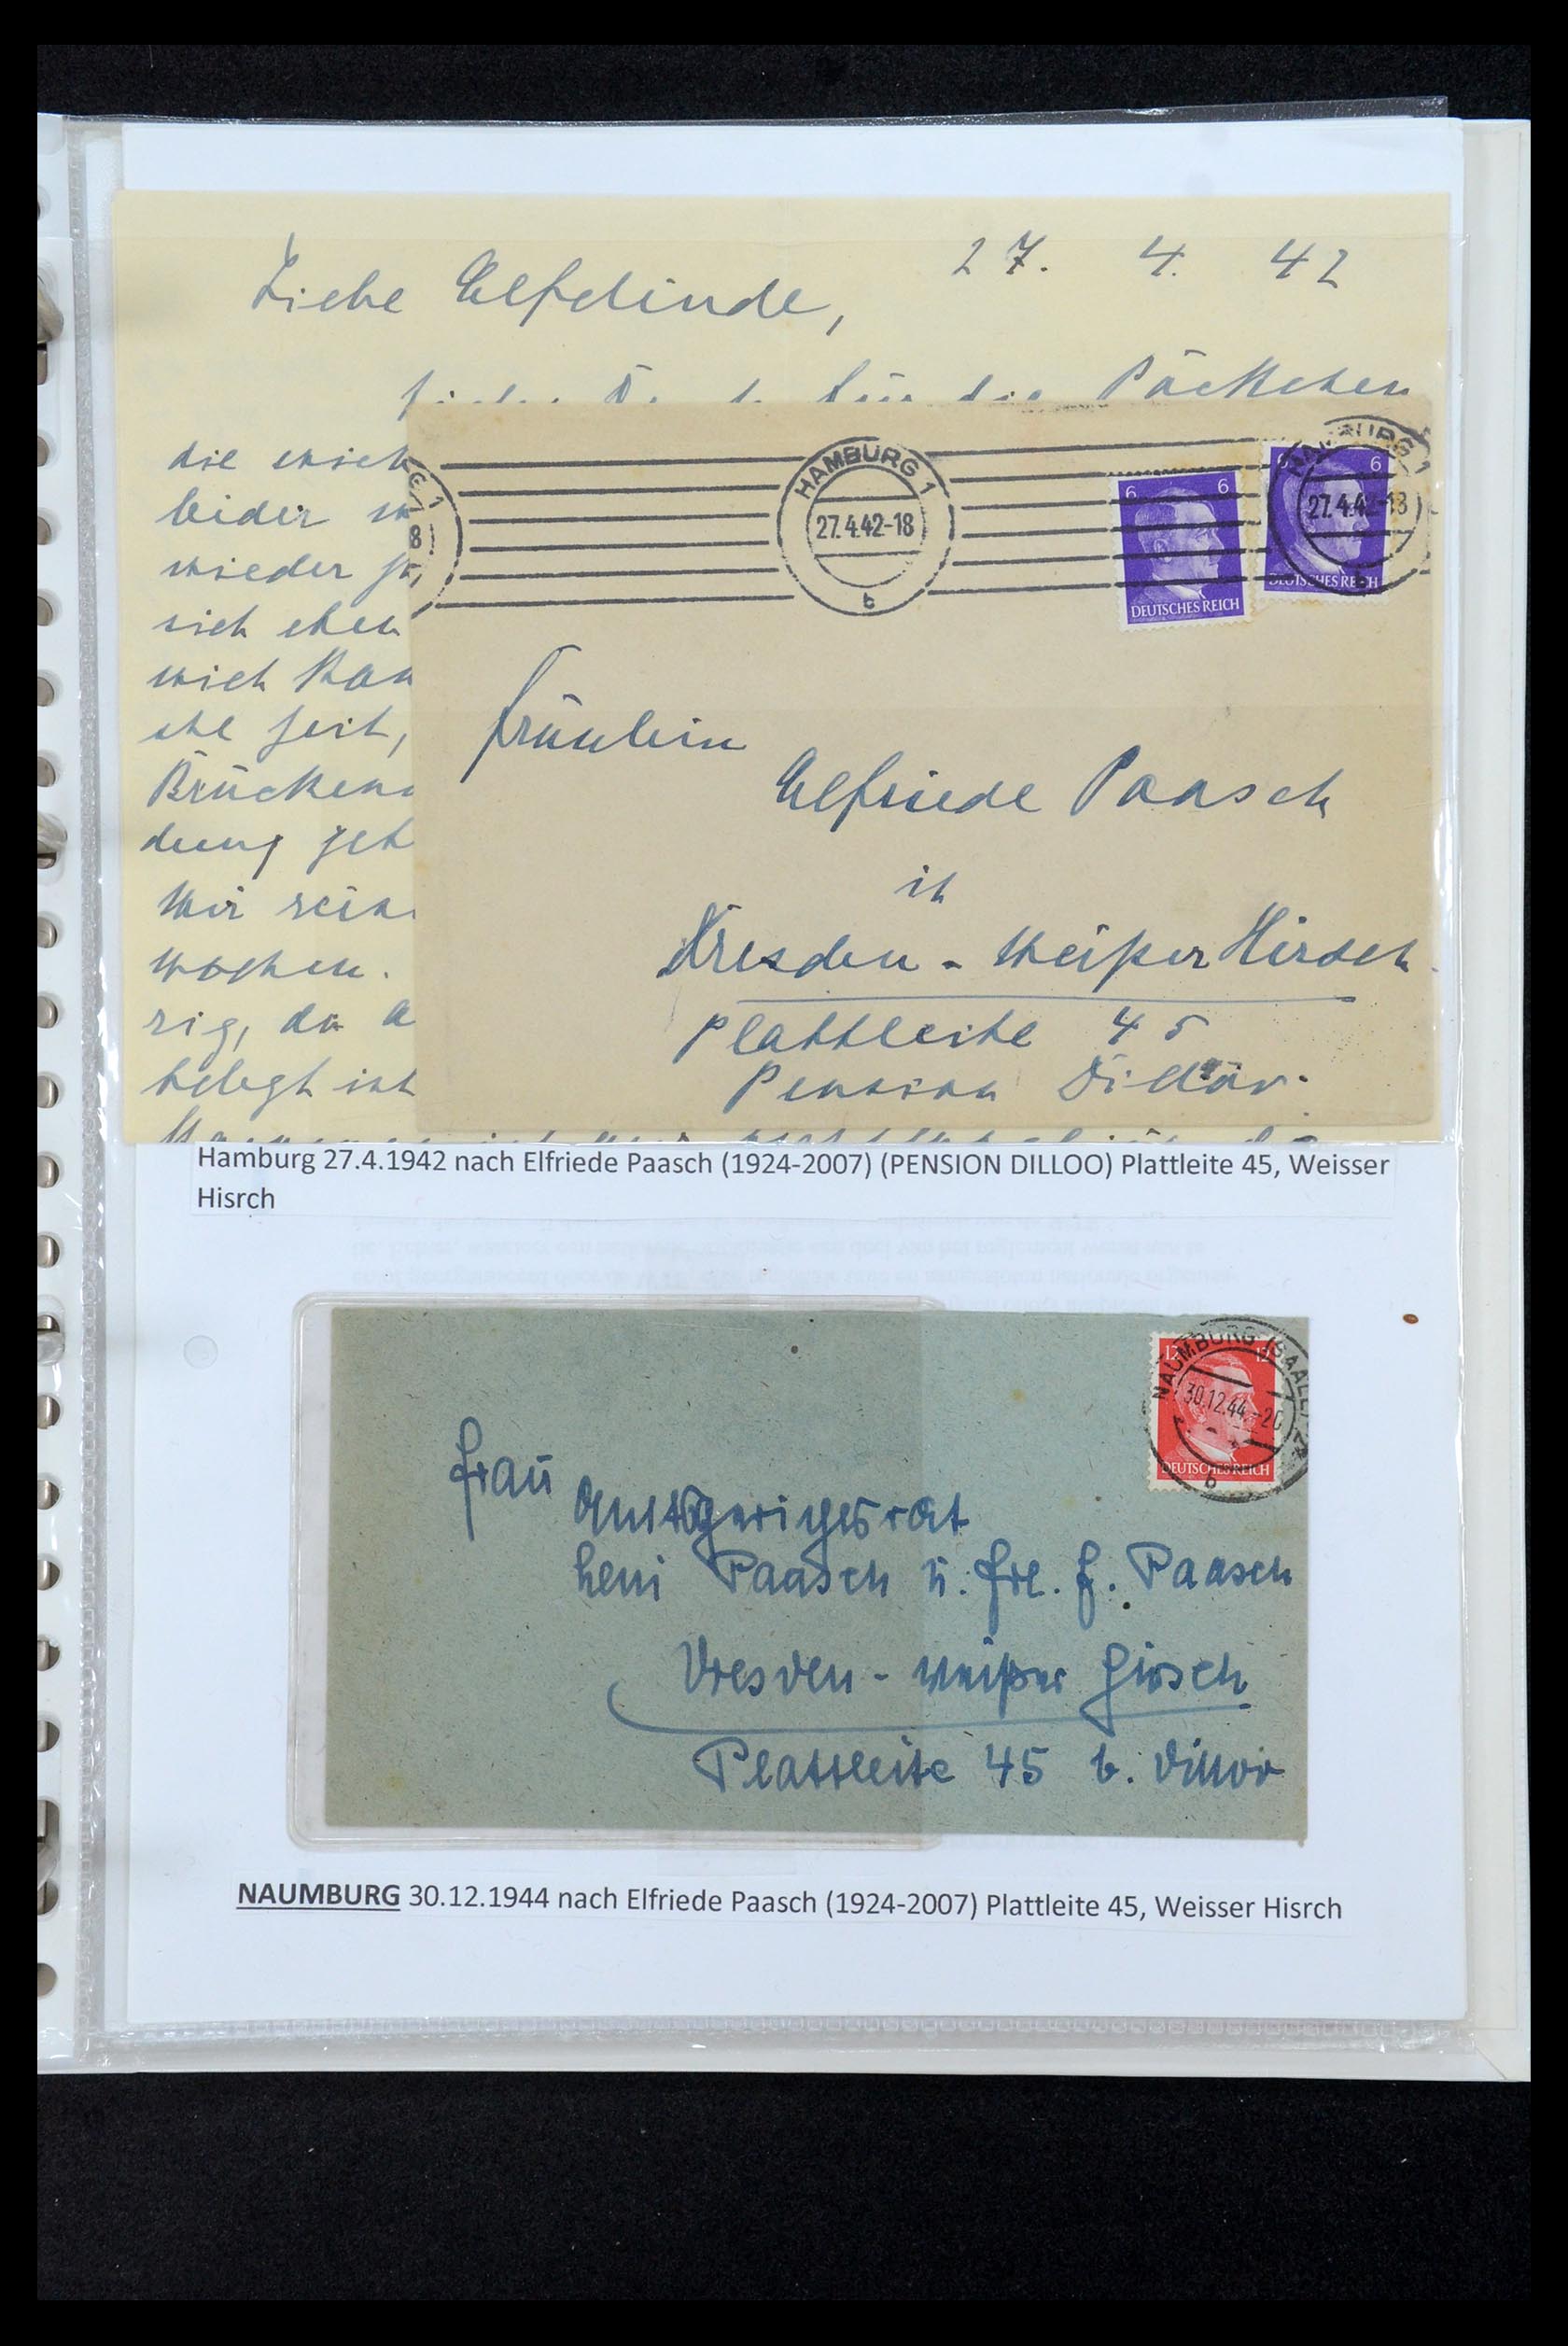 27. 4. 42
Liebe Elfelinde,
für die Päckchen
die mich
leider
wieder
sich eben
mich
ehe seit,
Brücken
dung geh
Wir sein
wochen.
rig, da
belegt ist
HAMBURG 1
27.4.42-18
b
6 6
DEUTSCHES REICH
6
DEUTSCHES REICH
HAMBURG 1
27.4.42-18
b
G 1
8
Fräulein
Elfriede Paasch
in
Dresden - Weißer Hirsch
Plattleite 45
Pension
Hamburg 27.4.1942 nach Elfriede Paasch (1924-2007) (PENSION DILLOO) Plattleite 45, Weisser
Hisrch
NAUMBURG (SAALE)
30.12.44.-20
b
12 12
DEUTSCHES REICH
Frau
Amtsgerichtsrat
Leni Paasch u. Frl. E. Paasch
Dresden - Weißer Hirsch
Plattleite 45 b. Dilloo
NAUMBURG 30.12.1944 nach Elfriede Paasch (1924-2007) Plattleite 45, Weisser Hisrch